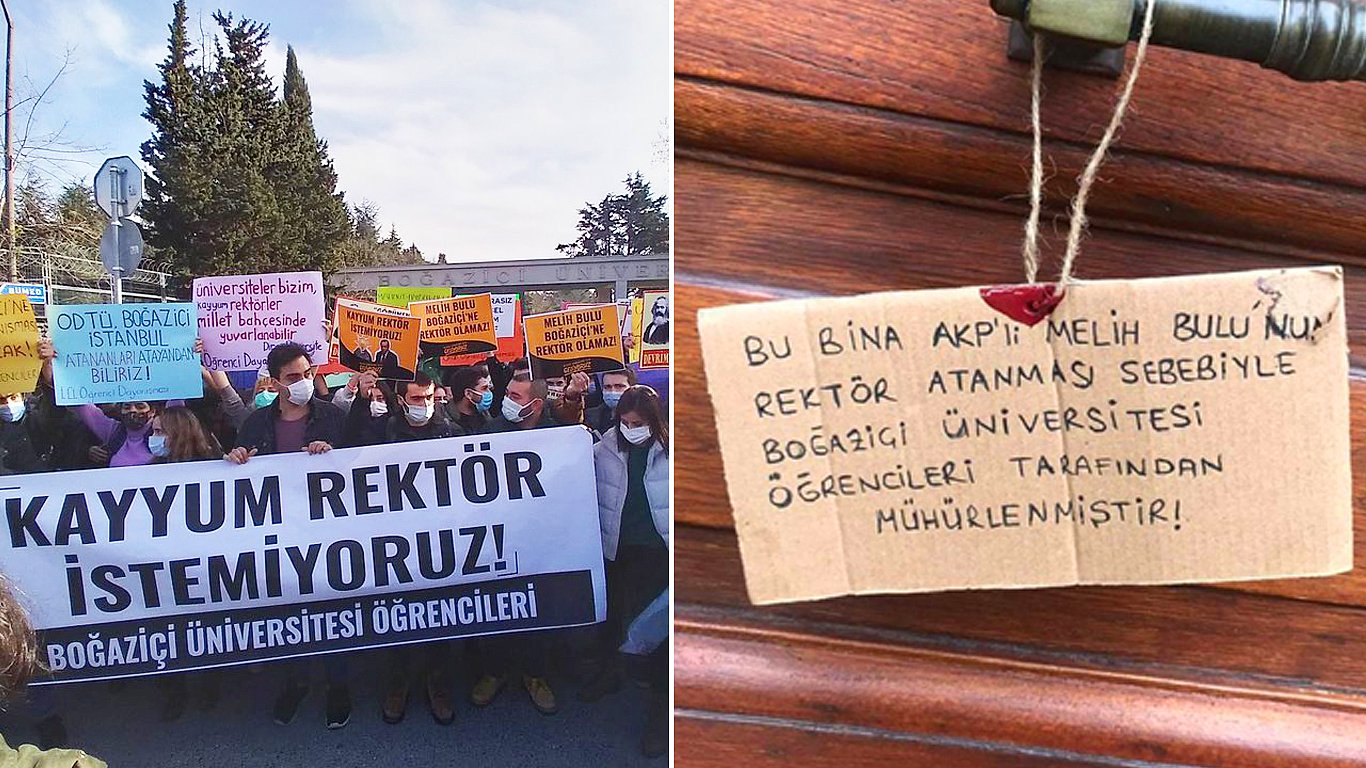 BOĞAZİÇİ ÜNİVER
BÜMED
ODTÜ, BOĞAZİÇİ
İSTANBUL
ATANANLARI ATAYANDAN
BİLİRİZ!
İ.Ü. Öğrenci Dayanışması
üniversiteler bizim,
kayyum rektörler
millet bahçesinde
yuvarlanabilir
Öğrenci
KAYYUM REKTÖR
İSTEMİYORUZ!
MELİH BULU
BOĞAZİÇİ'NE
REKTÖR OLAMAZ!
MELİH BULU
BOĞAZİÇİ'NE
REKTÖR OLAMAZ!
DEVRİM
"KAYYUM REKTÖR
İSTEMİYORUZ!"
BOĞAZİÇİ ÜNİVERSİTESİ ÖĞRENCİLERİ
BU BİNA AKP'li MELİH BULU'NUN
REKTÖR ATANMASI SEBEBİYLE
BOĞAZİÇİ ÜNİVERSİTESİ
ÖĞRENCİLERİ TARAFINDAN
MÜHÜRLENMİŞTİR!